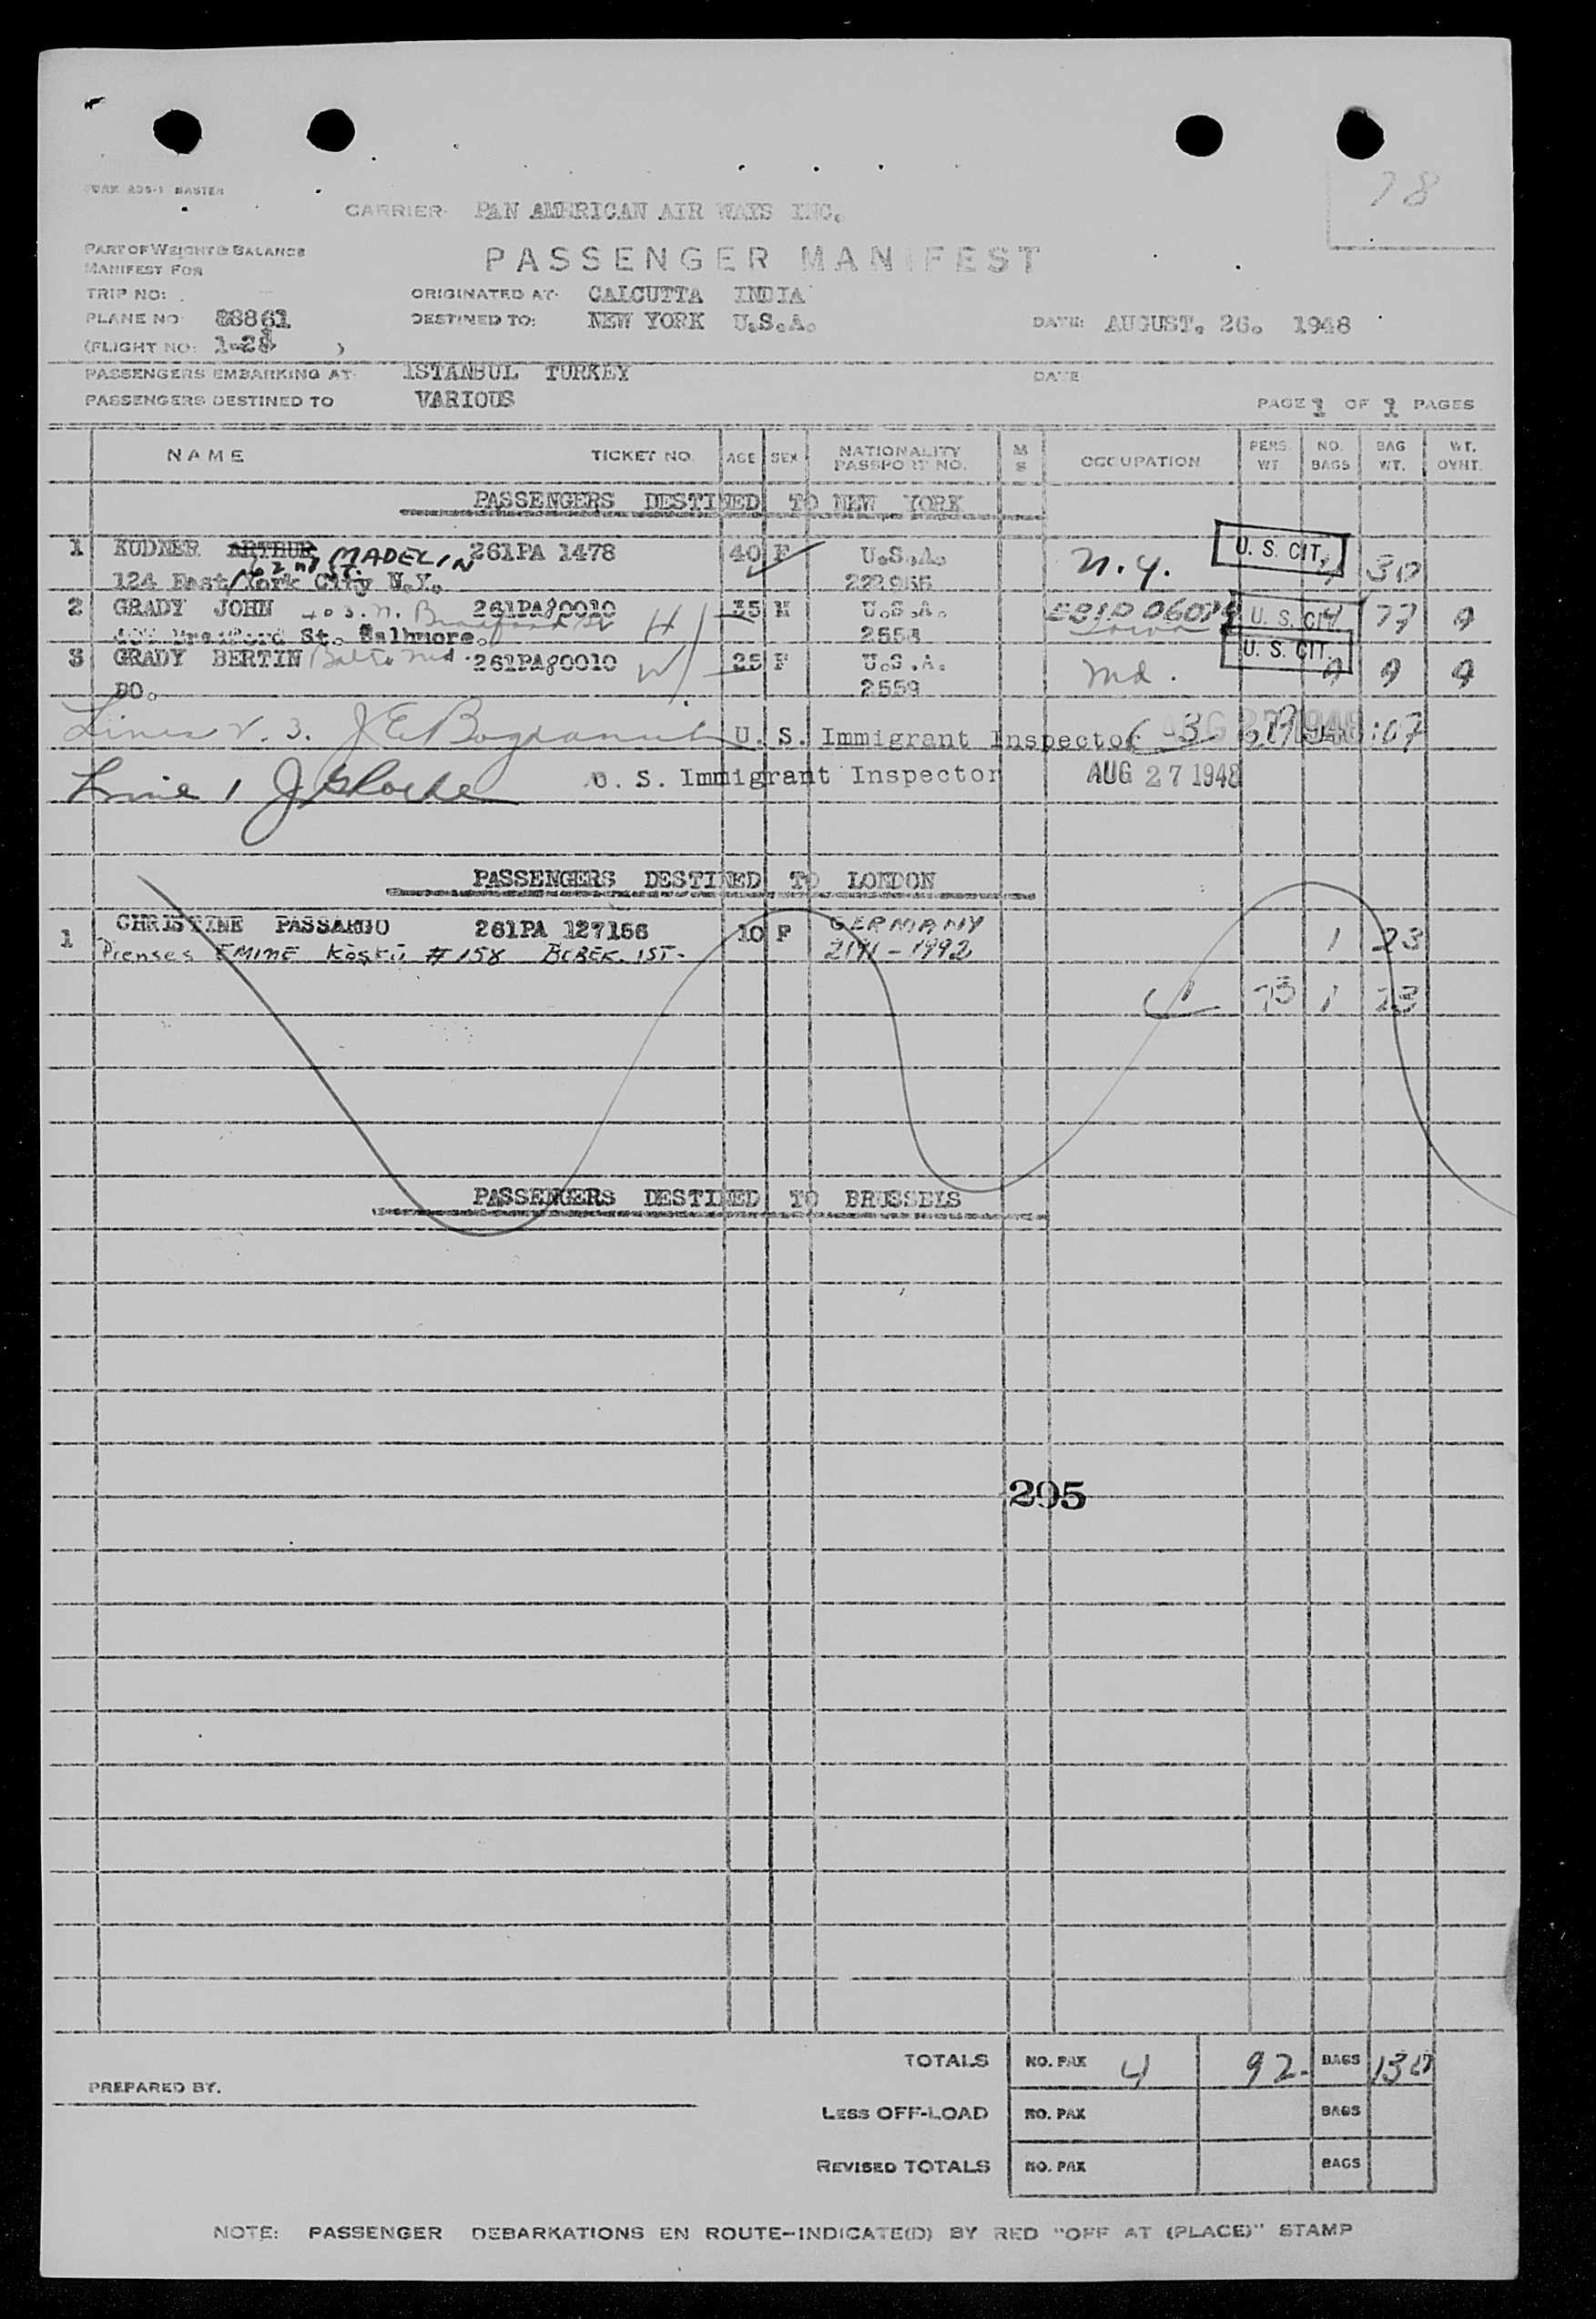 78
FORM ADS-1 MASTER
CARRIER: PAN AMERICAN AIR WAYS INC.
PART OF WEIGHT & BALANCE
MANIFEST FOR
PASSENGER MANIFEST
TRIP NO:
ORIGINATED AT: CALCUTTA INDIA
PLANE NO: 88861
DESTINED TO: NEW YORK U.S.A.
DATE: AUGUST. 26. 1948
(FLIGHT NO: )
PASSENGERS EMBARKING AT: ISTANBUL TURKEY
DATE
PASSENGERS DESTINED TO VARIOUS
PAGE 1 OF 1 PAGES
NAME TICKET NO. AGE SEX NATIONALITY PASSPORT NO. M S OCCUPATION PERS. WT. NO. BAGS BAG WT. WT. OVHT.
PASSENGERS DESTINED TO NEW YORK
1 KUDNER ARTHUR MADELIN 261PA 1478 40 F U.S.A. N.Y. U. S. CIT. 30
124 East 62nd St. York City N.Y.
2 GRADY JOHN 261PA80010 35 M U.S.A. U. S. CIT. 4 77
St. Balhmore. 2558
3 GRADY BERTIN Balto Md. 261PA80010 W 25 F U.S.A. Md. U. S. CIT.
DO. 2559
Lines 2. 3. U. S. Immigrant Inspector AUG 27 1948 107
Line 1 U. S. Immigrant Inspector AUG 27 1948
PASSENGERS DESTINED TO LONDON
1 CHRISTINE PASSARGO 261PA 127166 10 F GERMANY 1 23
Prenses EMINE Köşkü # 158 BEBEK. IST. 2191-1992
73 1 23
PASSENGERS DESTINED TO BRUSSELS
295
TOTALS NO. PAX 4 92. BAGS 130
PREPARED BY.
LESS OFF-LOAD NO. PAX BAGS
REVISED TOTALS NO. PAX BAGS
NOTE: PASSENGER DEBARKATIONS EN ROUTE-INDICATE(D) BY RED "OFF AT (PLACE)" STAMP